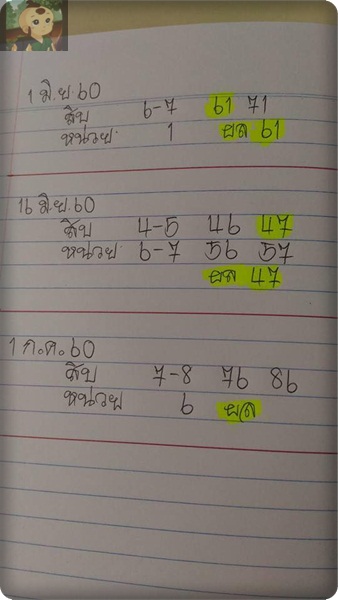 1 มิ.ย.60
สิบ 6-7 61 71
หน่วย 1 ผล 61
16 มิ.ย.60
สิบ 4-5 46 47
หน่วย 6-7 56 57
ผล 47
1 ก.ค.60
สิบ 7-8 76 86
หน่วย 6 ผล